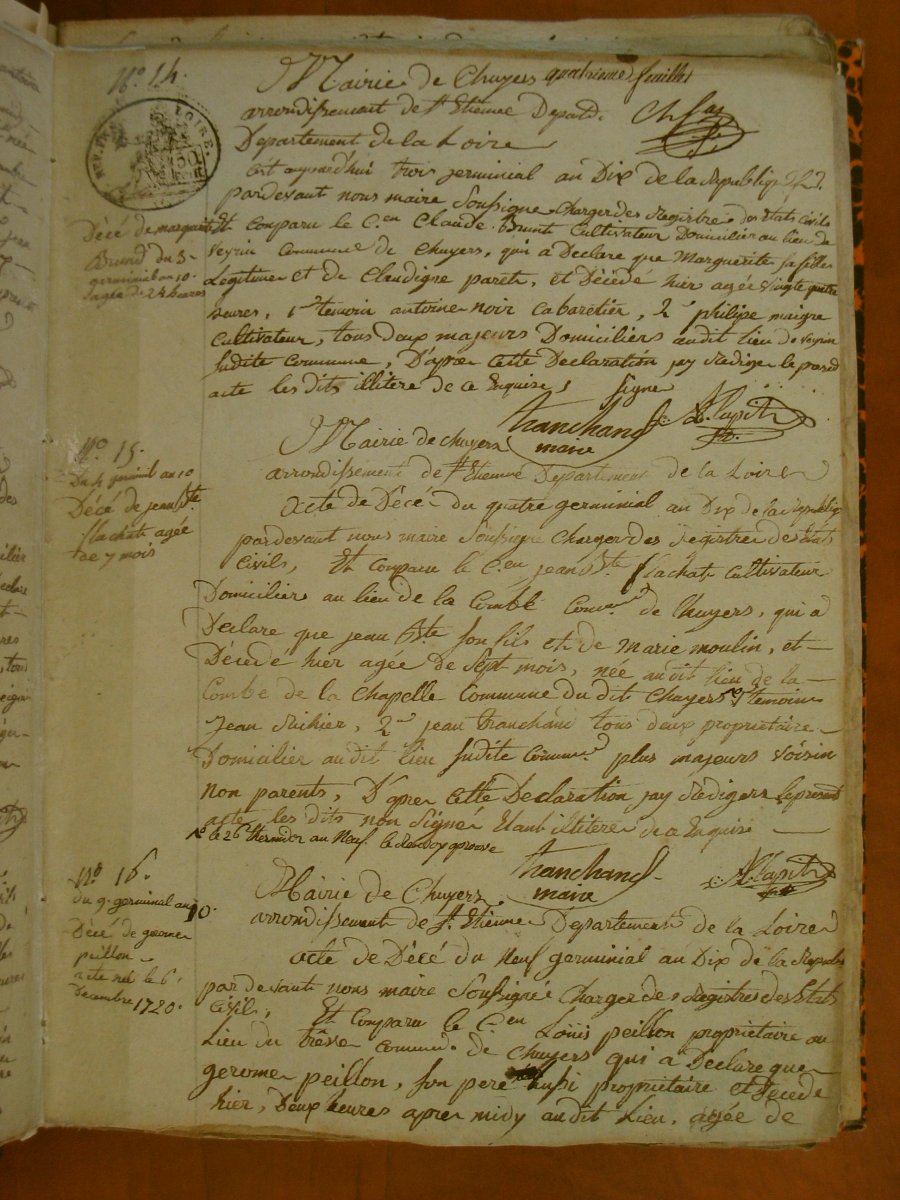 N.o 14.
Mairie de Chuyers quatrieme feuillet
arrondissement de St Etienne Depart.
Departement de la Loire
LOIRE
Cest aujourdhui trois germinial an Dix de la Republique
pardevant nous maire Soussigne Charger des Registre des Etats Civils
Et Comparu le C.en Claude Brunt Cultivateur Domicilier au lieu de
Veyrin Commune de Chuyers, qui a Declare que Marguerite sa fille
Legitime et de Claudigne parêt, et Décédé hier agée vingte quatre
heures, 1er temoin antoine noir Cabaretier, 2.e philipe maigre
Cultivateur, tous deux majeurs Domiciliers audit lieu de veyrin
Sudite Commune, D'aprer Cette Declaration jay Rediger le present
acte les dits illitere de ce Enquise, Signe
Décé de marguerite
Brunt du 3
germinial an 10.
agée de 24 heures
tranchand
maire
N.o 15.
Du 4 germinil an 10
Décé de jean B.te
flachat agée
de 7 mois
Mairie de chuyers
arrondissement de St Etienne Departement de la Loire
acte de Décé du quatre germinial an Dix de la Republiq
pardevant nous maire Soussigne Charger des Registre des Etats
Civils, Et Comparu le C.en jean B.te flachat Cultivateur
Domicilier au lieu de la Combe Comm. de Chuyers, qui a
Declare que jean B.te son fils et de marie moulin, et
Décédé hier agée de Sept mois, née audit lieu de la
Combe de la Chapelle Commune du dit Chuyers 1er temoin
jean 2.me jean tranchand tous deux proprietaire
Domicilier audit lieu Sudite Commun.e plus majeurs voisin
non parents, D'aprer Cette Declaration jay Rediger le present
acte les dits non Signé Etant illitere de ce Enquise
le 26 thermidor an Neuf
tranchand
maire
N.o 16.
du 9. germinial an 10.
Décé de gerome
peillon
acte né le 6
Decembre 1720.
Mairie de Chuyers
arrondissement de St. Etienne Departement de la Loire
acte de Décé du Neuf germinial an Dix de la Republi
pardevant nous maire Soussigné Charger des Registre des Etats
Civils, Et Comparu le C.en Loüis peillon proprietaire au
Lieu du trêve Commun. de Chuyers qui a Declare que
gerome peillon, son pere aussi proprietaire et Decede
hier, Deux heures aprer midy audit Lieu, agée de